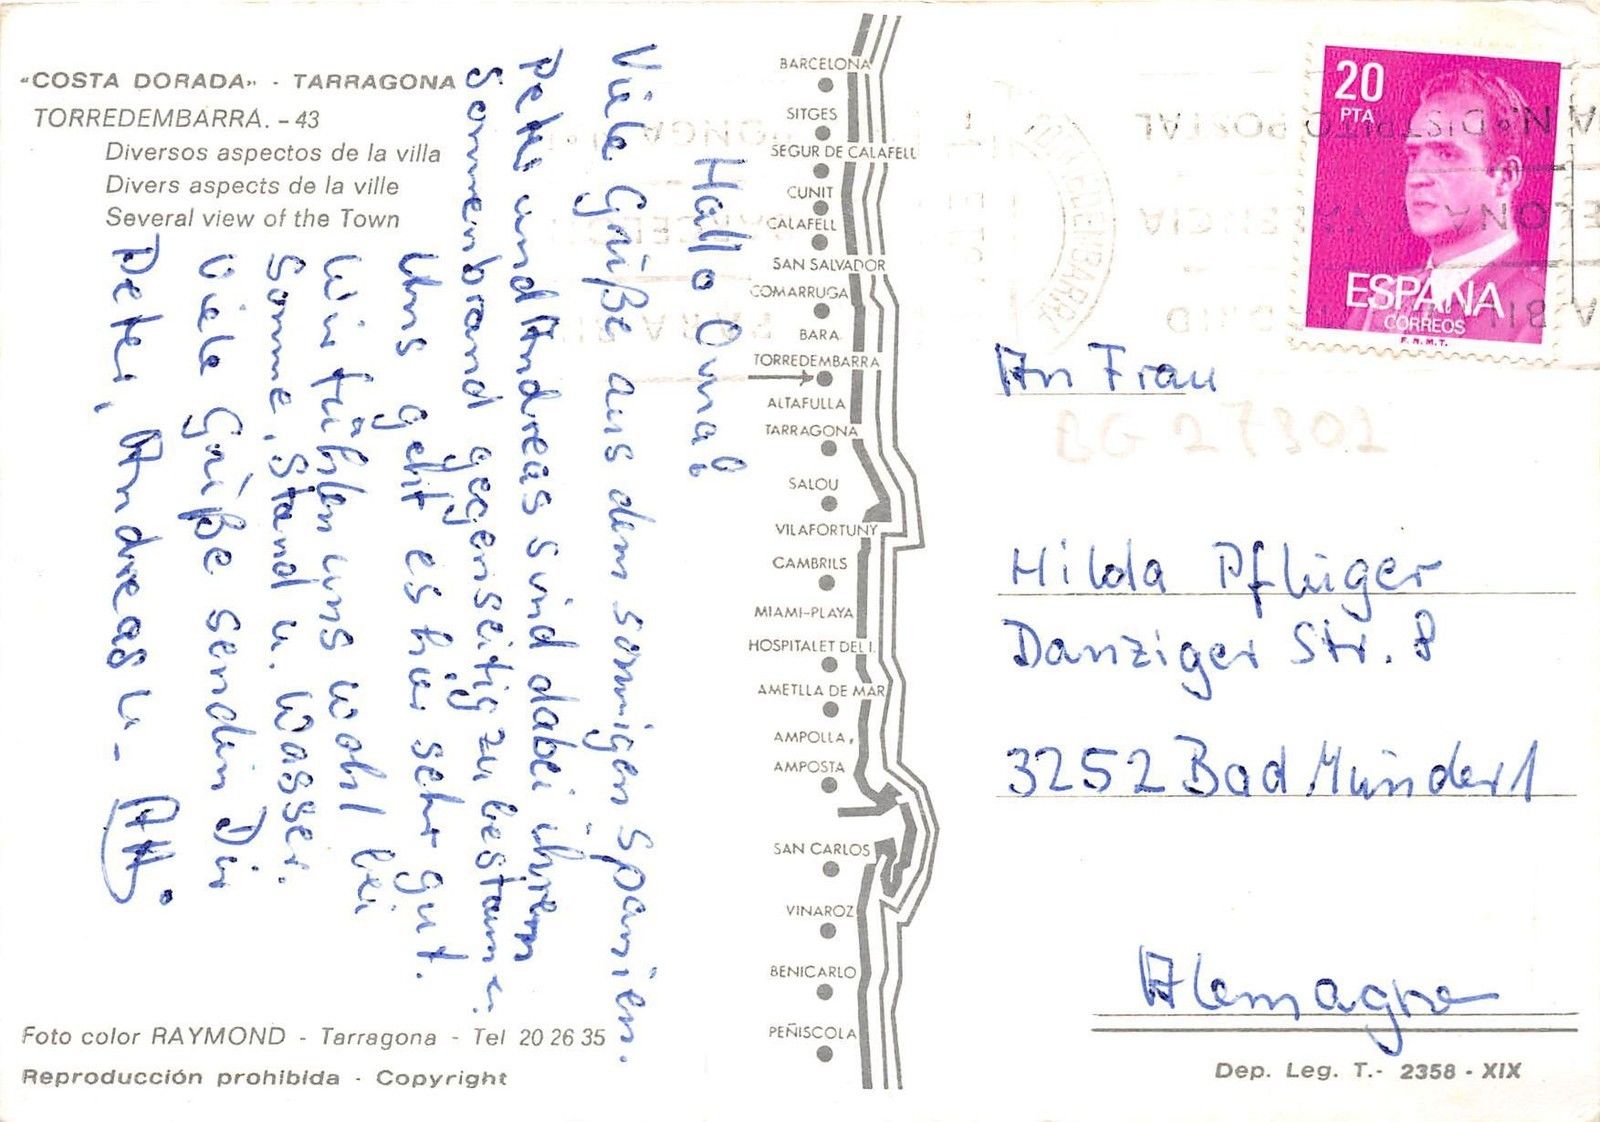 «COSTA DORADA» - TARRAGONA
TORREDEMBARRA. - 43
Diversos aspectos de la villa
Divers aspects de la ville
Several view of the Town
Hallo Oma!
Viele Grüße aus dem sonnigen Spanien.
Peter und Andreas sind dabei ihren
Sonnenbrand gegenseitig zu bestaunen.
Uns geht es hier sehr gut.
Wir fühlen uns wohl bei
Sonne, Stand u. Wasser.
Viele Grüße senden Dir
Peter, Andreas u.
Foto color RAYMOND - Tarragona - Tel 20 26 35
Reproducción prohibida - Copyright
BARCELONA
SITGES
SEGUR DE CALAFELL
CUNIT
CALAFELL
SAN SALVADOR
COMARRUGA
BARA
TORREDEMBARRA
ALTAFULLA
TARRAGONA
SALOU
VILAFORTUNY
CAMBRILS
MIAMI-PLAYA
HOSPITALET DEL I.
AMETLLA DE MAR
AMPOLLA
AMPOSTA
SAN CARLOS
VINAROZ
BENICARLO
PEÑISCOLA
20
PTA
ESPAÑA
CORREOS
F.N.M.T.
An Frau
BG 27302
Hilda Pflüger
Danziger Str. 8
3252 Bad Münder 1
Alemagne
Dep. Leg. T.- 2358 - XIX